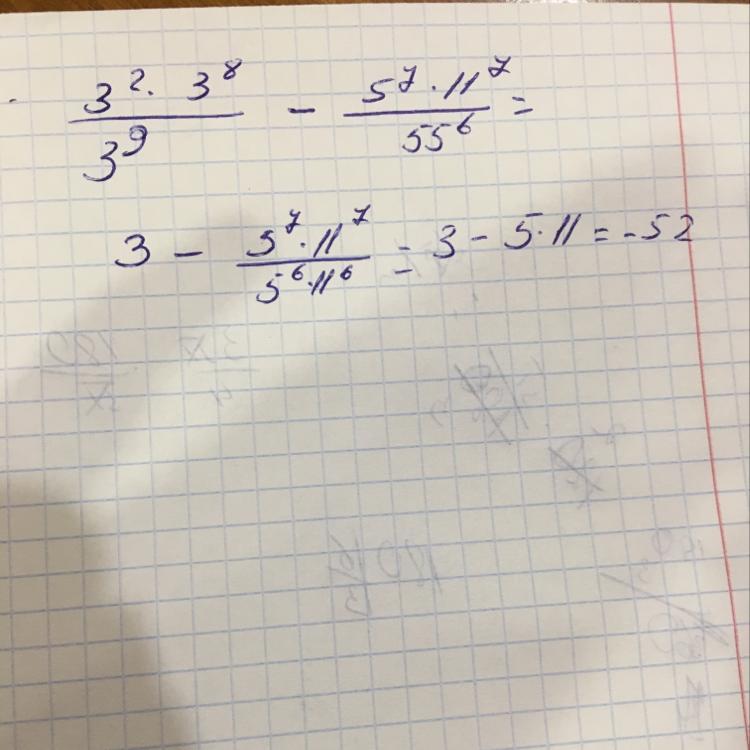 \frac{3^2 \cdot 3^8}{3^9} - \frac{5^7 \cdot 11^7}{55^6} =
3 - \frac{5^7 \cdot 11^7}{5^6 \cdot 11^6} = 3 - 5 \cdot 11 = -52